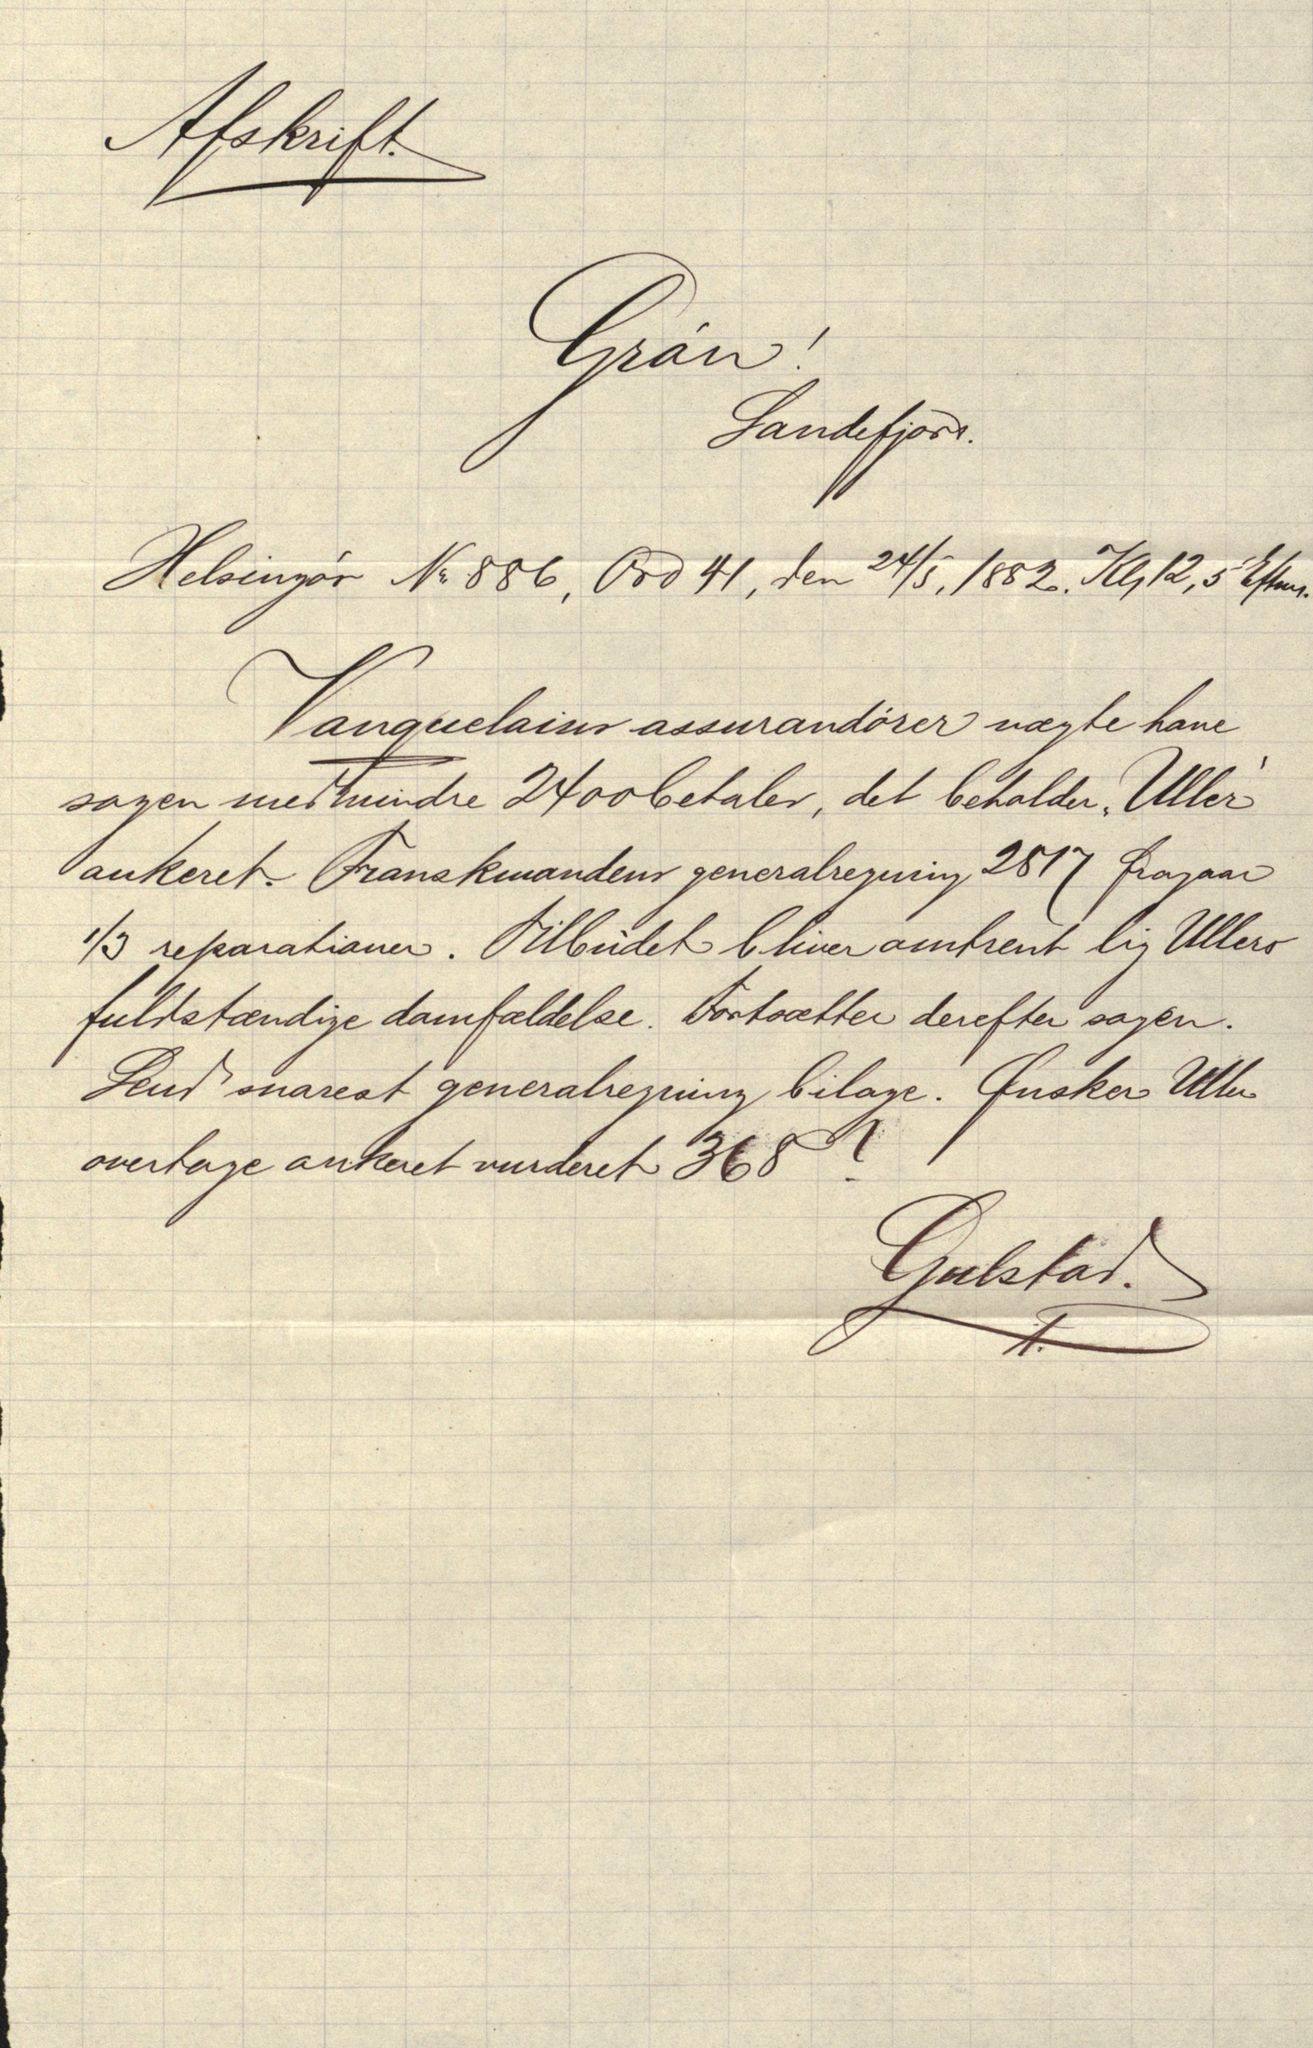 Afskrift.
Grón!
Sandefjord.
Helsingór No 886, Ord 41, den 24/5, 1882. Kl, 12, 5 Efterm.
Vanquelains assurandórer nægte have
sagen medmindre 2400 betales, det beholder „Uller"
ankeret. Franskmandens generalregning 2817 fragaar
1/3 reparationer. Tilbudet bliver omtrent lig Ullers
fuldstændige domfældelse. Fortsætter derefter sagen.
Send snarest generalregning bilage. Ønsker Uller
overtage ankeret vurderet 368?
Gulstad.